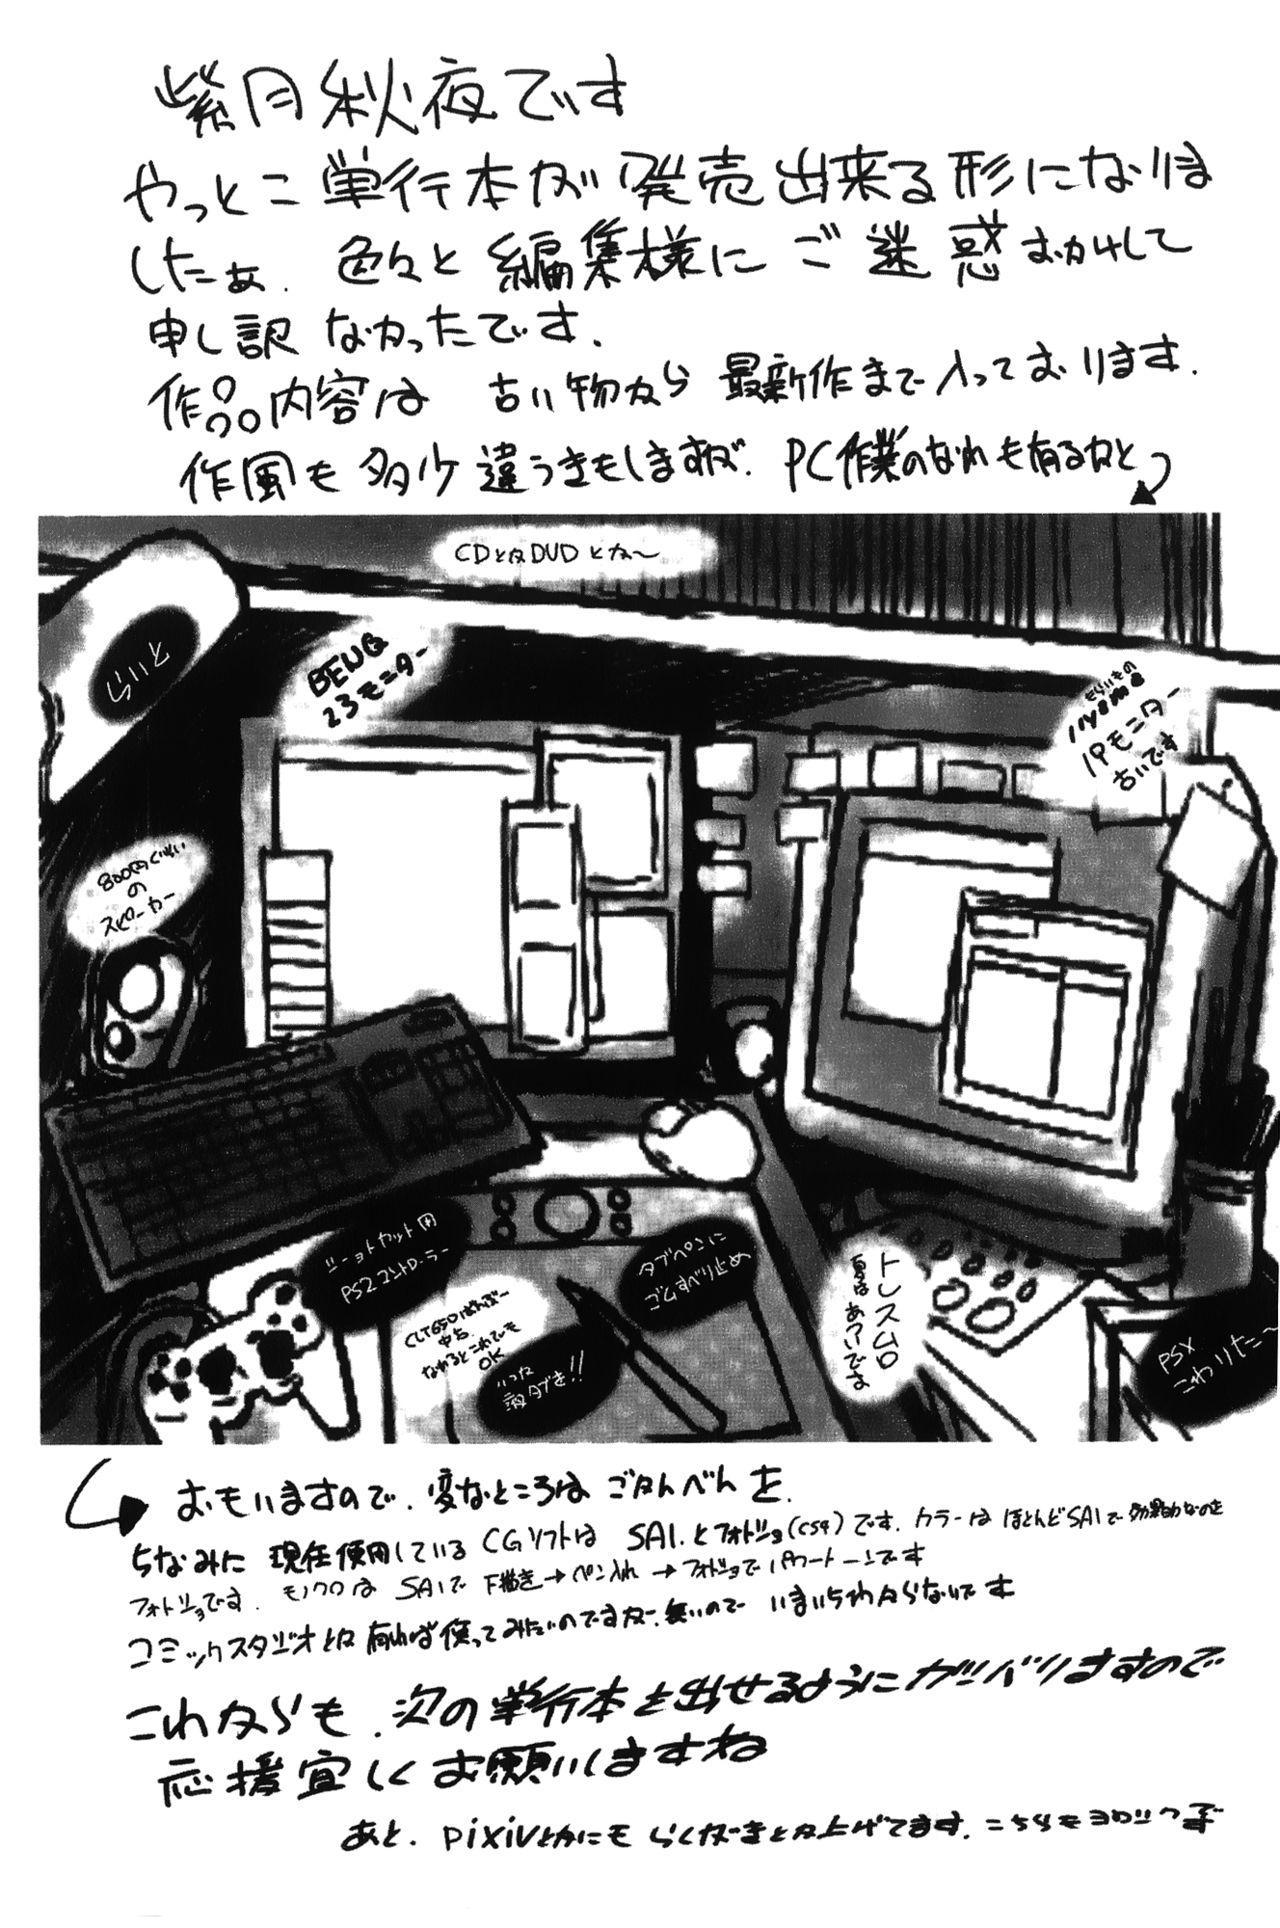 紫月秋夜です
やっとこ単行本が発売出来る形になりま
したぁ. 色々と編集様にご迷惑おかけして
申し訳なかったです.
作品内容は 古い物から最新作まで入っております.
作風も多少違うきもしますが. PC作業のなれも有るかと
CDとかDVDとか〜
らいと
BENQ
23モニター
もらいもの
iiyama
19モニター
古いです
800円ぐらい
の
スピーカー
ショートカット用
PS2コントローラー
タブペンに
ゴムすべり止め
CLT650ばんぼー
なれるとこれでも
OK
いつか
液タブを!!
トレス
夏はあついです
PSX
こわれた〜
おもいますので. 変なところはごかんべんを.
ちなみに 現在使用しているCGソフトは SAI.とフォトショ(CS4)です. カラーは ほとんどSAIで 効果的なのを
フォトショです. モノクロは SAIで 下描き→ペン入れ→フォトショでパワートーンです
コミックスタジオとか有れば使ってみたいのですが. 無いので いまいちわからないです
これからも. 次の単行本を出せるようにガンバリますので
応援宜しくお願いしますね
あと. pixivとかにも らくがきとか上げてます. こちらもヨロシク